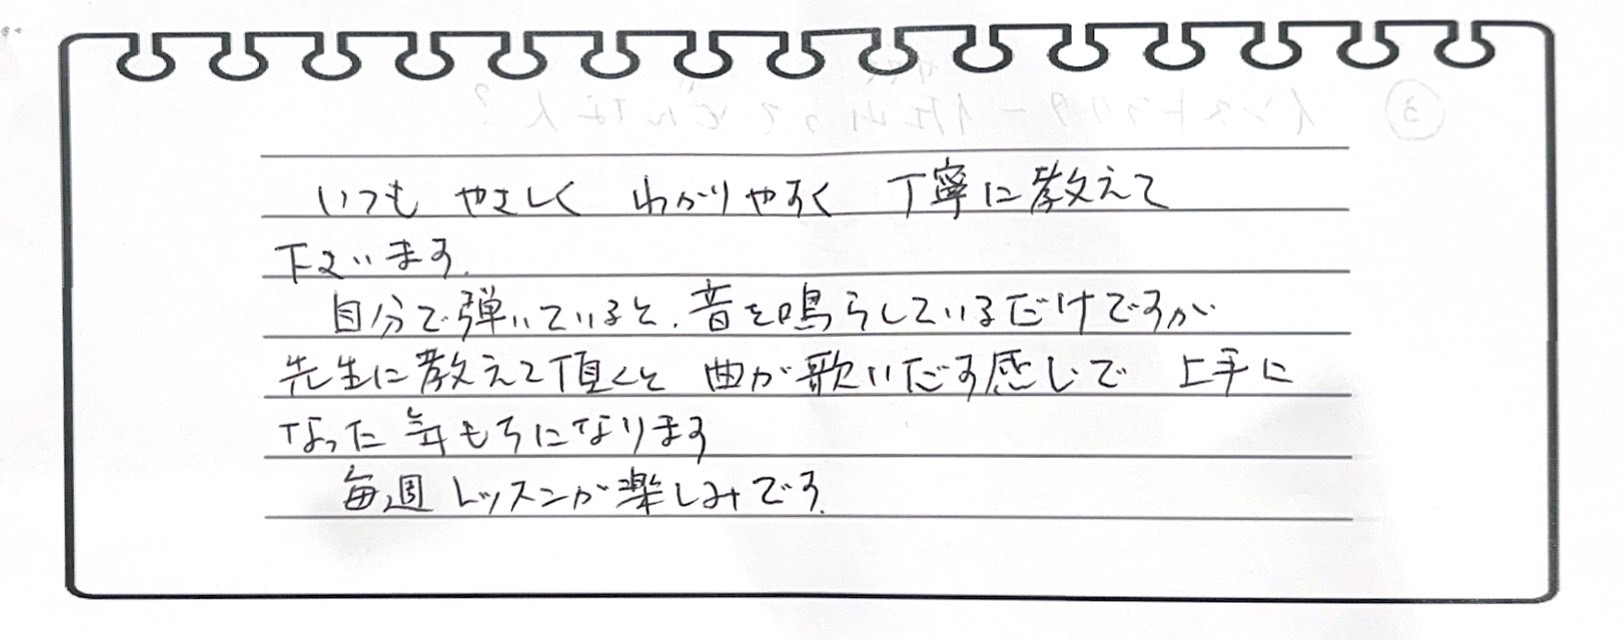 いつも やさしく わかりやすく 丁寧に教えて
下さいます.
自分で弾いていると、音を鳴らしているだけですが
先生に教えて頂くと 曲が歌いだす感じで 上手に
なった気もちになります
毎週 レッスンが楽しみです.